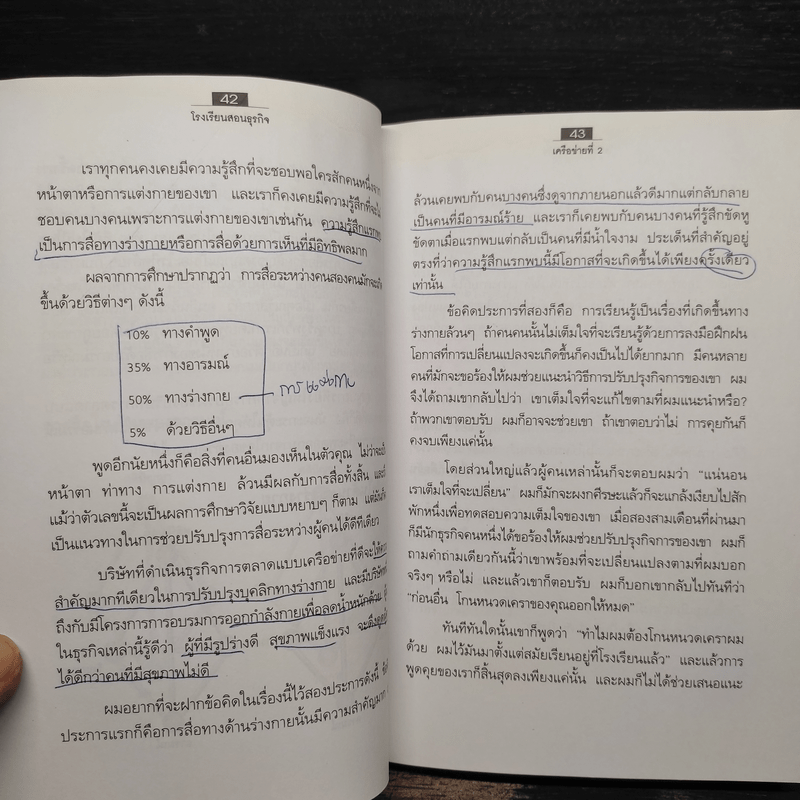 42
โรงเรียนสอนธุรกิจ
เราทุกคนคงเคยมีความรู้สึกที่จะชอบพอใครสักคนหนึ่งจาก
หน้าตาหรือการแต่งกายของเขา และเราก็คงเคยมีความรู้สึกที่จะไม่
ชอบคนบางคนเพราะการแต่งกายของเขาเช่นกัน ความรู้สึกแรกพบ
เป็นการสื่อทางร่างกายหรือการสื่อด้วยการเห็นที่มีอิทธิพลมาก
ผลจากการศึกษาปรากฏว่า การสื่อระหว่างคนสองคนมักจะเกิด
ขึ้นด้วยวิธีต่างๆ ดังนี้
10% ทางคำพูด
35% ทางอารมณ์
50% ทางร่างกาย
5% ด้วยวิธีอื่นๆ
พูดอีกนัยหนึ่งก็คือสิ่งที่คนอื่นมองเห็นในตัวคุณ ไม่ว่าจะเป็น
หน้าตา ท่าทาง การแต่งกาย ล้วนมีผลกับการสื่อทั้งสิ้น และถึง
แม้ว่าตัวเลขนี้จะเป็นผลการศึกษาวิจัยแบบหยาบๆ ก็ตาม แต่มันก็
เป็นแนวทางในการช่วยปรับปรุงการสื่อระหว่างผู้คนได้ดีทีเดียว
บริษัทที่ดำเนินธุรกิจการตลาดแบบเครือข่ายที่ดีจะให้ความ
สำคัญมากทีเดียวในการปรับปรุงบุคลิกทางร่างกาย และมีบริษัท
ถึงกับมีโครงการการอบรมการออกกำลังกายเพื่อลดน้ำหนักด้วย
ในธุรกิจเหล่านี้รู้ดีว่า ผู้ที่มีรูปร่างดี สุขภาพแข็งแรง จะดึงดูด
ได้ดีกว่าคนที่มีสุขภาพไม่ดี
ผมอยากที่จะฝากข้อคิดในเรื่องนี้ไว้สองประการดังนี้
ประการแรกก็คือการสื่อทางด้านร่างกายนั้นมีความสำคัญมาก
43
เครือข่ายที่ 2
ล้วนเคยพบกับคนบางคนซึ่งดูจากภายนอกแล้วดีมากแต่กลับกลาย
เป็นคนที่มีอารมณ์ร้าย และเราก็เคยพบกับคนบางคนที่รู้สึกขัดหู
ขัดตาเมื่อแรกพบแต่กลับเป็นคนที่มีน้ำใจงาม ประเด็นที่สำคัญอยู่
ตรงที่ว่าความรู้สึกแรกพบนี้มีโอกาสที่จะเกิดขึ้นได้เพียงครั้งเดียว
เท่านั้น
ข้อคิดประการที่สองก็คือ การเรียนรู้เป็นเรื่องที่เกิดขึ้นทาง
ร่างกายล้วนๆ ถ้าคนคนนั้นไม่เต็มใจที่จะเรียนรู้ด้วยการลงมือฝึกฝน
โอกาสที่การเปลี่ยนแปลงจะเกิดขึ้นก็คงเป็นไปได้ยากมาก มีคนหลาย
คนที่มักจะขอร้องให้ผมช่วยแนะนำวิธีการปรับปรุงกิจการของเขา ผม
จึงได้ถามเขากลับไปว่า เขาเต็มใจที่จะแก้ไขตามที่ผมแนะนำหรือ?
ถ้าพวกเขาตอบรับ ผมก็อาจจะช่วยเขา ถ้าเขาตอบว่าไม่ การคุยกันก็
คงจบเพียงแค่นั้น
โดยส่วนใหญ่แล้วผู้คนเหล่านั้นก็จะตอบผมว่า “แน่นอน
เราเต็มใจที่จะเปลี่ยน” ผมก็มักจะผงกศีรษะแล้วก็จะแกล้งเงียบไปสัก
พักหนึ่งเพื่อทดสอบความเต็มใจของเขา เมื่อสองสามเดือนที่ผ่านมา
ก็มีนักธุรกิจคนหนึ่งได้ขอร้องให้ผมช่วยปรับปรุงกิจการของเขา ผมก็
ถามคำถามเดียวกันนี้ว่าเขาพร้อมที่จะเปลี่ยนแปลงตามที่ผมบอก
จริงๆ หรือไม่ และแล้วเขาก็ตอบรับ ผมก็บอกเขากลับไปทันทีว่า
“ก่อนอื่น โกนหนวดเคราของคุณออกให้หมด”
ทันทีทันใดนั้นเขาก็พูดว่า “ทำไมผมต้องโกนหนวดเคราผม
ด้วย ผมไว้มันมาตั้งแต่สมัยเรียนอยู่ที่โรงเรียนแล้ว” และแล้วการ
พูดคุยของเราก็สิ้นสุดลงเพียงแค่นั้น และผมก็ไม่ได้ช่วยเสนอแนะ